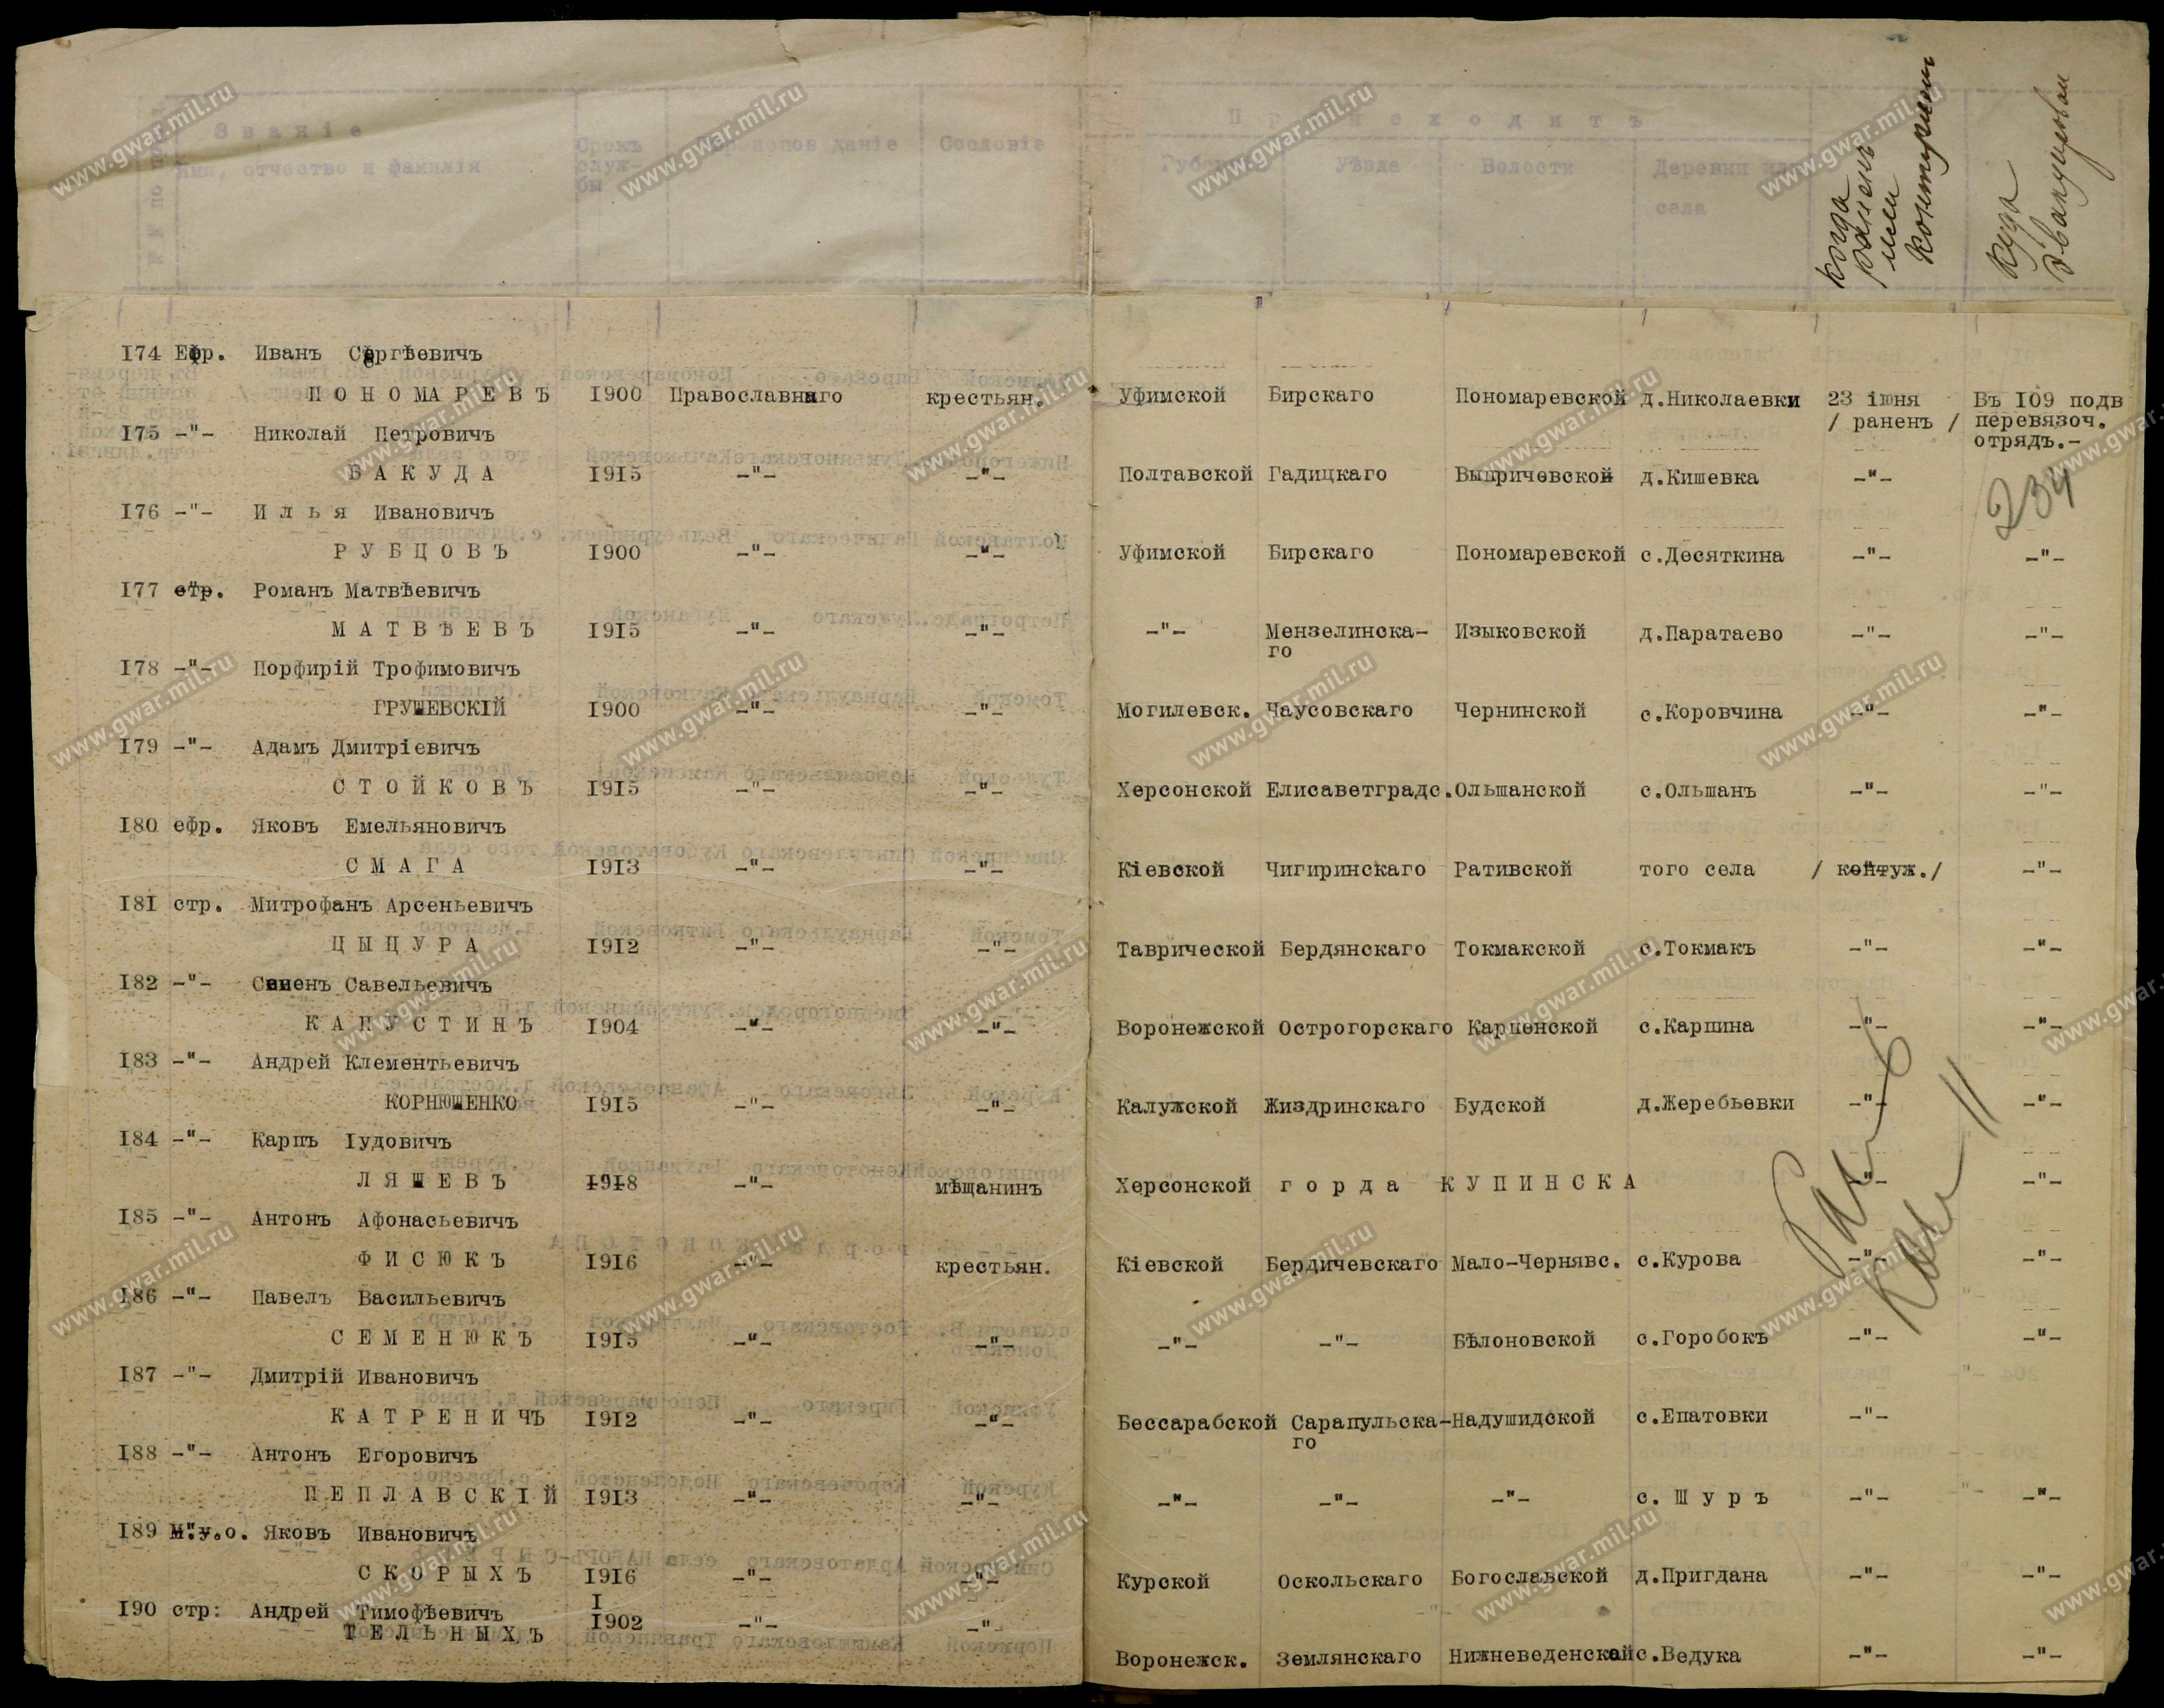 Званіе
имя, отчество и фамилія
Срокъ
служ-
бы
Сословіе
Уѣзда
Волости
Деревни или
села
когда
раненъ
или
контужен
куда
эвакуирован
174 Ефр. Иванъ Сергѣевичъ
ПОНОМАРЕВЪ 1900 Православнаго крестьян. Уфимской Бирскаго Пономаревской д.Николаевки 23 iюня Въ 109 подв
/ раненъ / перевязоч.
отрядъ.-
175 -"- Николай Петровичъ
БАКУДА 1915 -"- -"- Полтавской Гадицкаго Выпричевской д.Кишевка -"-
234
176 -"- Илья Ивановичъ
РУБЦОВЪ 1900 -"- -"- Уфимской Бирскаго Пономаревской с.Десяткина -"- -"-
177 стр. Романъ Матвѣевичъ
МАТВѢЕВЪ 1915 -"- -"- -"- Мензелинска- Изыковской д.Паратаево -"- -"-
го
178 -"- Порфирій Трофимовичъ
ГРУШЕВСКІЙ 1900 -"- -"- Могилевск. Чаусовскаго Чернинской с.Коровчина -"- -"-
179 -"- Адамъ Дмитріевичъ
СТОЙКОВЪ 1915 -"- -"- Херсонской Елисаветградс.Ольшанской с.Ольшанъ -"- -"-
180 ефр. Яковъ Емельяновичъ
СМАГА 1913 -"- -"- Кіевской Чигиринскаго Ративской того села / контуж./ -"-
181 стр. Митрофанъ Арсеньевичъ
ЦЫЦУРА 1912 -"- -"- Таврической Бердянскаго Токмакской с.Токмакъ -"- -"-
182 -"- Семенъ Савельевичъ
КАПУСТИНЪ 1904 -"- -"- Воронежской Острогорскаго Карпенской с.Карпина -"- -"-
183 -"- Андрей Клементьевичъ
КОРНЮШЕНКО 1915 -"- -"- Калужской Жиздринскаго Будской д.Жеребьевки -"- -"-
184 -"- Карпъ Іудовичъ
ЛЯШЕВЪ 1918 -"- мѣщанинъ Херсонской горда КУПИНСКА -"- -"-
185 -"- Антонъ Афонасьевичъ
ФИСЮКЪ 1916 -"- крестьян. Кіевской Бердичевскаго Мало-Чернявс. с.Курова -"- -"-
186 -"- Павелъ Васильевичъ
СЕМЕНЮКЪ 1915 -"- -"- -"- -"- Бѣлоновской с.Горобокъ -"- -"-
187 -"- Дмитрій Ивановичъ
КАТРЕНИЧЪ 1912 -"- -"- Бессарабской Сарапульска-Надушидской с.Епатовки -"-
го
188 -"- Антонъ Егоровичъ
ПЕПЛАВСКІЙ 1913 -"- -"- -"- -"- -"- с. Шуръ -"- -"-
189 м.у.о. Яковъ Ивановичъ
СКОРЫХЪ 1916 -"- -"- Курской Оскольскаго Богославской д.Пригдана -"- -"-
190 стр: Андрей Тимофѣевичъ I
ТЕЛЬНЫХЪ 1902 -"- -"- Воронежск. Землянскаго Нижневеденской с.Ведука -"- -"-
www.gwar.mil.ru